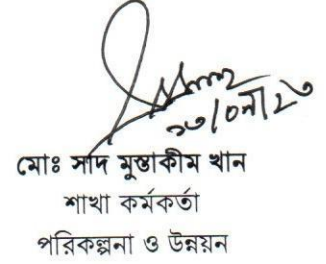 মোঃ সাদ মুস্তাকীম খান
শাখা কর্মকর্তা
পরিকল্পনা ও উন্নয়ন